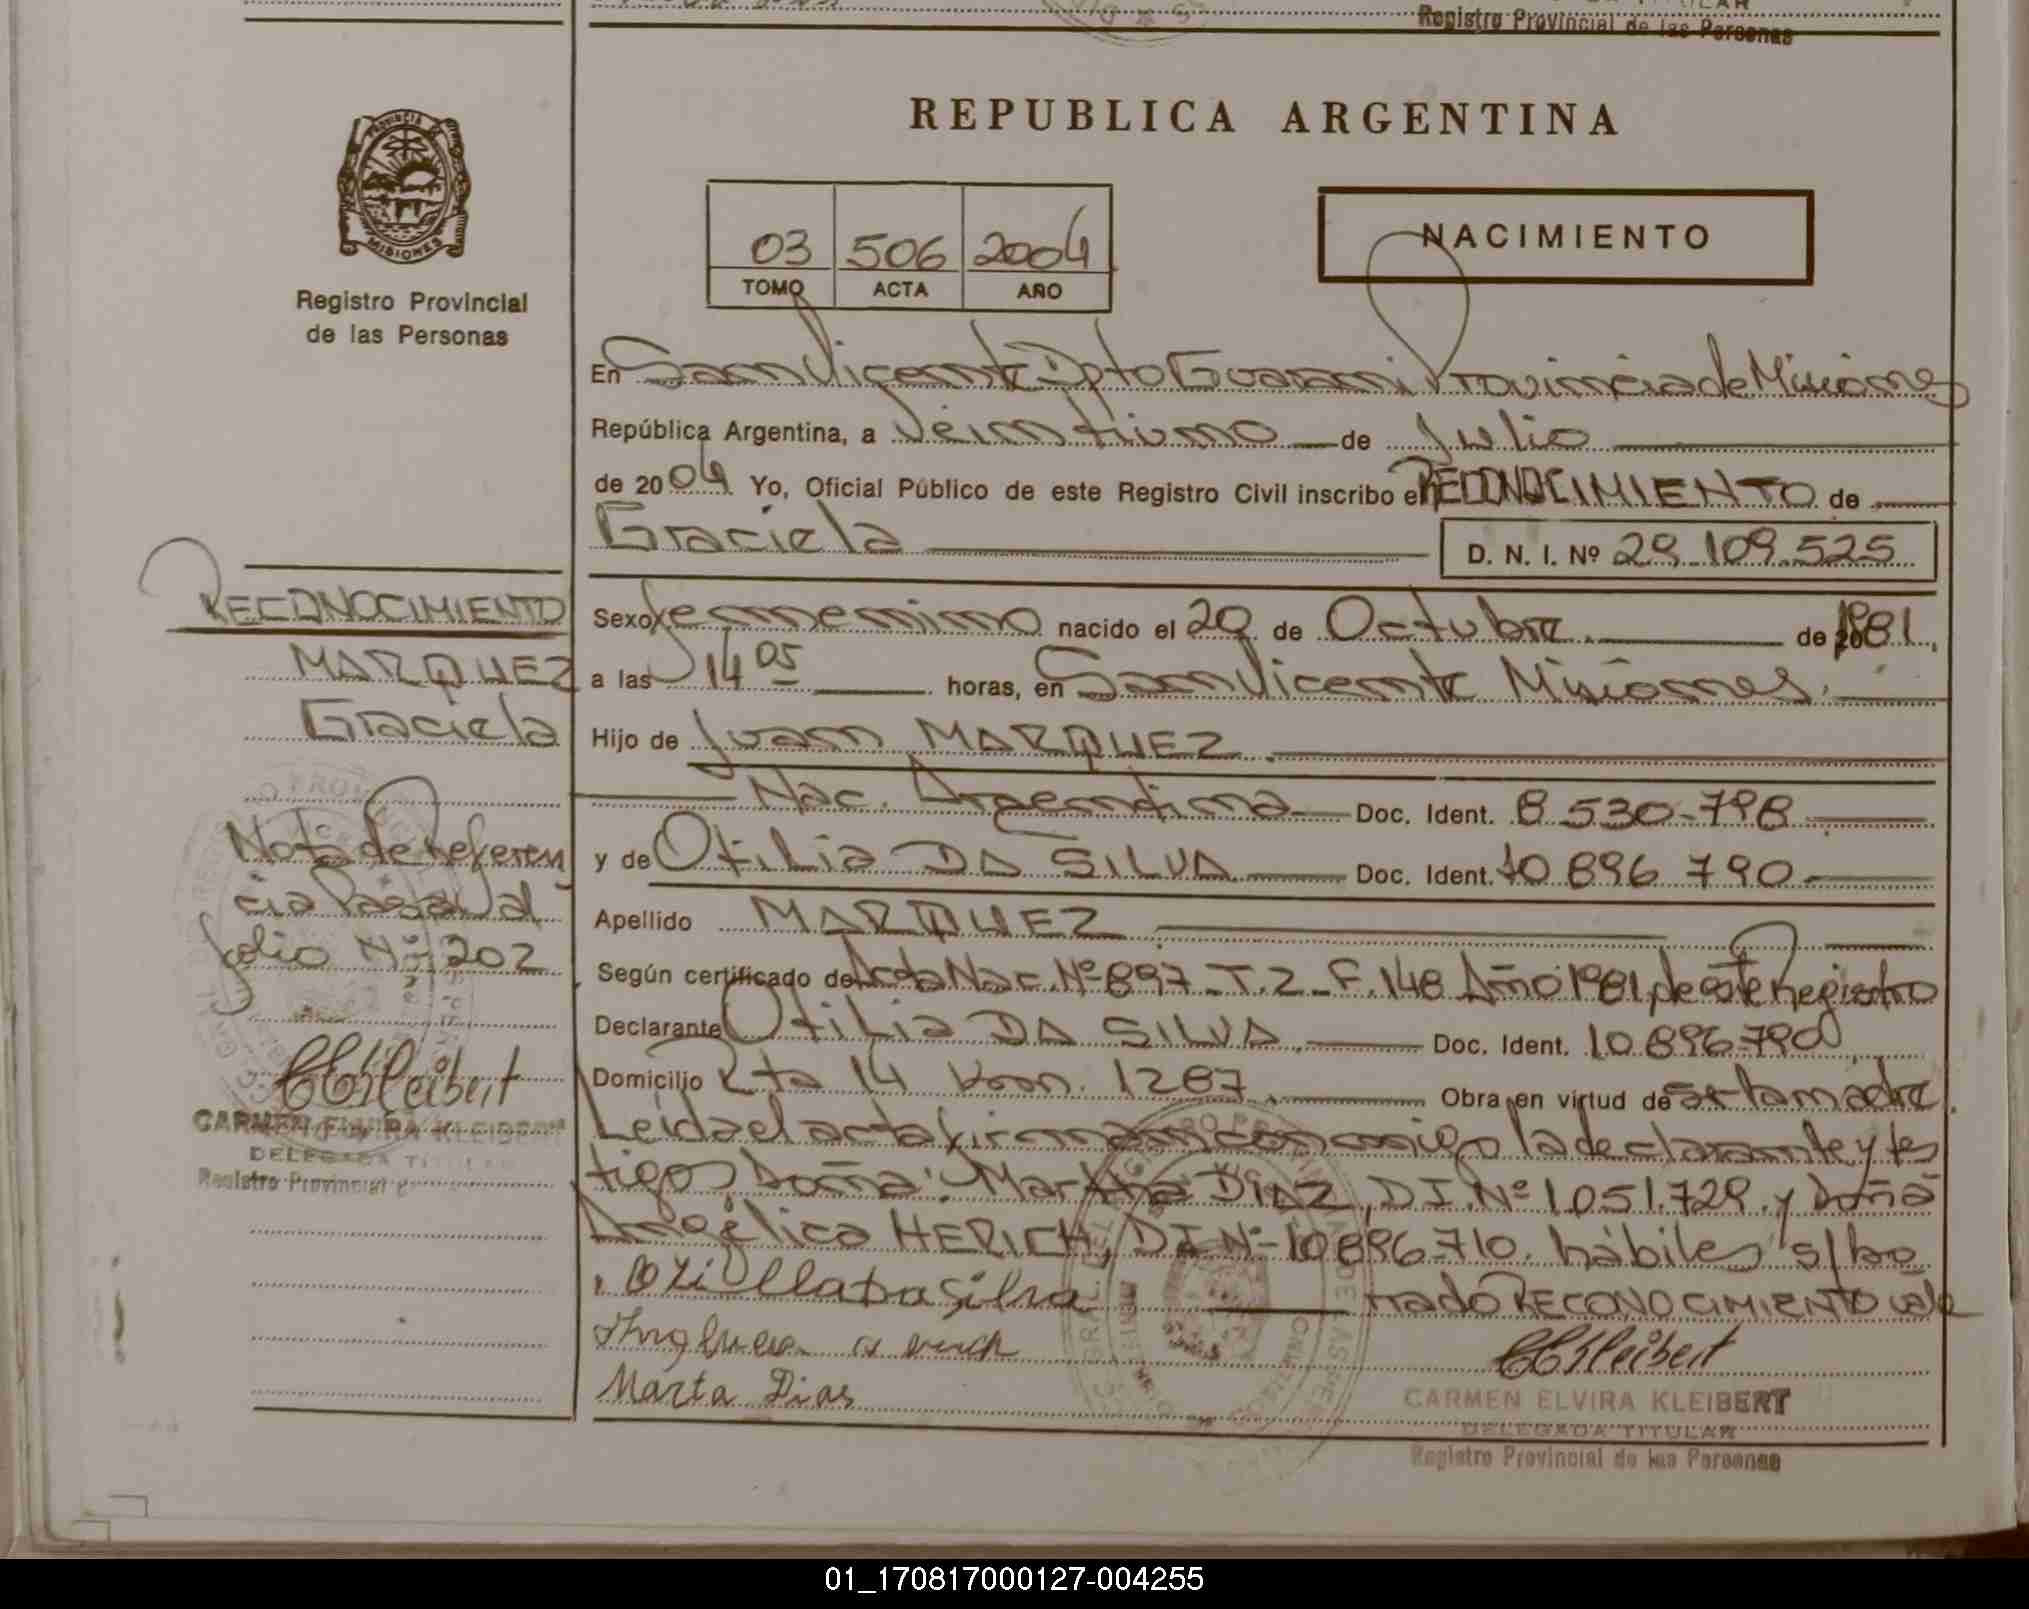 Registro Provincial de las Personas
PROVINCIA DE
MISIONES
Registro Provincial
de las Personas
REPUBLICA ARGENTINA
03 506 2004
TOMO ACTA AÑO
NACIMIENTO
En San Vicente Dpto Guaraní Provincia de Misiones
República Argentina, a Veintiuno de Julio
de 2004 Yo, Oficial Público de este Registro Civil inscribo el RECONOCIMIENTO de
Graciela
D. N. I. Nº 29.109.525
Sexo femenino nacido el 20 de Octubre de 1981
a las 14 05 horas, en San Vicente Misiones.
Hijo de Juan MARQUEZ
Nac. Argentina Doc. Ident. 8.530.798
y de Otilia DA SILVA Doc. Ident. 10.896.790
Apellido MARQUEZ
Según certificado de Acta Nac. Nº 897 - T. 2 - F. 148 Año 1981, de este Registro
Declarante Otilia DA SILVA Doc. Ident. 10.896.790
Domicilio Rta 14 Km. 1287 Obra en virtud de ser la madre.
Leída el acta firman conmigo la declarante y tes
tigos Doña: Martha DIAZ, D.I. Nº 1.051.729. y Doña
Angélica HERICH, DI Nº 10.896.710. hábiles s/bo
rrado RECONOCIMIENTO vale
Marta Dias
CEKleibert
CARMEN ELVIRA KLEIBERT
DELEGADA TITULAR
Registro Provincial de las Personas
RECONOCIMIENTO
MARQUEZ
Graciela
Nota de referen
cia Pasa al
folio Nº 202
CEKleibert
CARMEN ELVIRA KLEIBERT
DELEGADA TITULAR
Registro Provincial
01_170817000127-004255